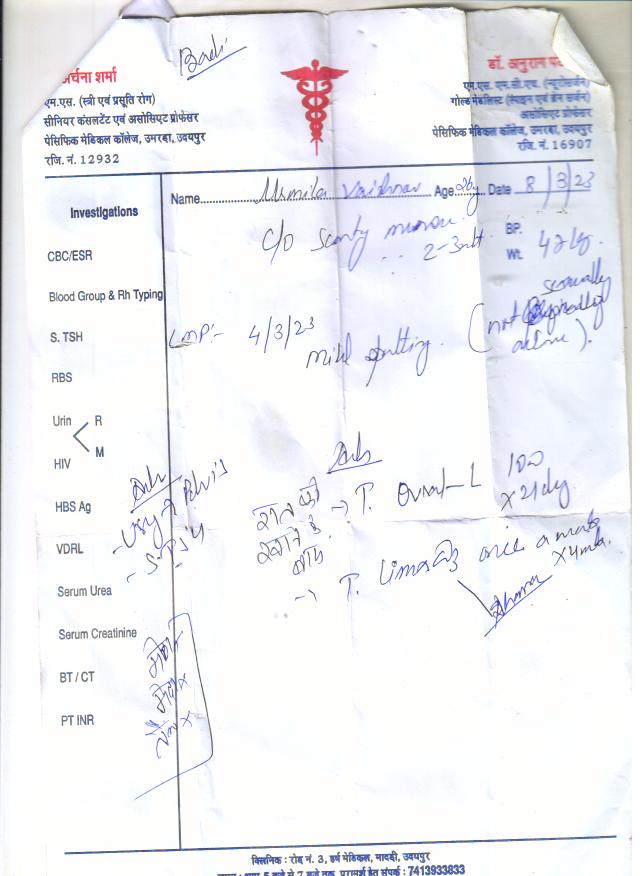 र्चना शर्मा
एम.एस. (स्त्री एवं प्रसूति रोग)
सीनियर कंसलटेंट एवं असोसिएट प्रोफेसर
पेसिफिक मेडिकल कॉलेज, उमरड़ा, उदयपुर
रजि. नं. 12932
डॉ. अनुराग
एम.एस. एम.सी.एच. (न्यूरोसर्जन)
गोल्ड मेडलिस्ट (स्पाइन एवं ब्रेन सर्जन)
असोसिएट प्रोफेसर
पेसिफिक मेडिकल कॉलेज, उमरड़ा, उदयपुर
रजि. नं. 16907
Name Urmila Vaishnav Age 26y Date 8/3/23
Investigations
c/o scanty menses
2-3
BP.
Wt. 42 kg.
CBC/ESR
Blood Group & Rh Typing
S. TSH
LMP:- 4/3/23
mild spotting. (not sexually
active).
RBS
Urin R
M
HIV
HBS Ag
VDRL
Serum Urea
Serum Creatinine
BT / CT
PT INR
Adv
- USG Pelvis
Adv
रात को
खाने के
बाद
→ T. Ovral-L
x 21 day
→ T. once a
क्लिनिक : रोड नं. 3, हर्ष मेडिकल, मादड़ी, उदयपुर
समय : शाम 5 बजे से 7 बजे तक, परामर्श हेतु संपर्क : 7413933833